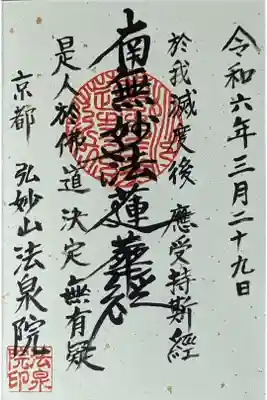 令和六年三月二十九日
於我滅度後 應受持斯經
南無妙法蓮華経
是人於佛道 決定無有疑
京都 弘妙山法泉院
法泉
院印